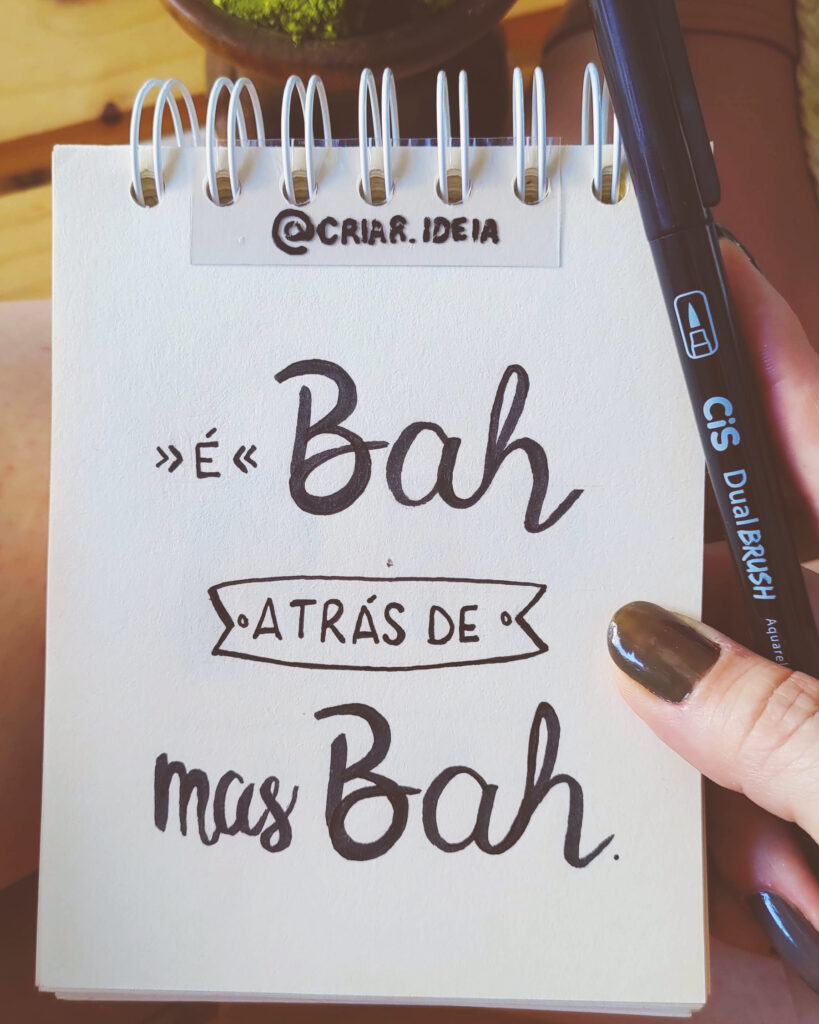 @CRIAR.IDEIA
» É « Bah
ATRÁS DE
mas Bah.
CiS DualBRUSH